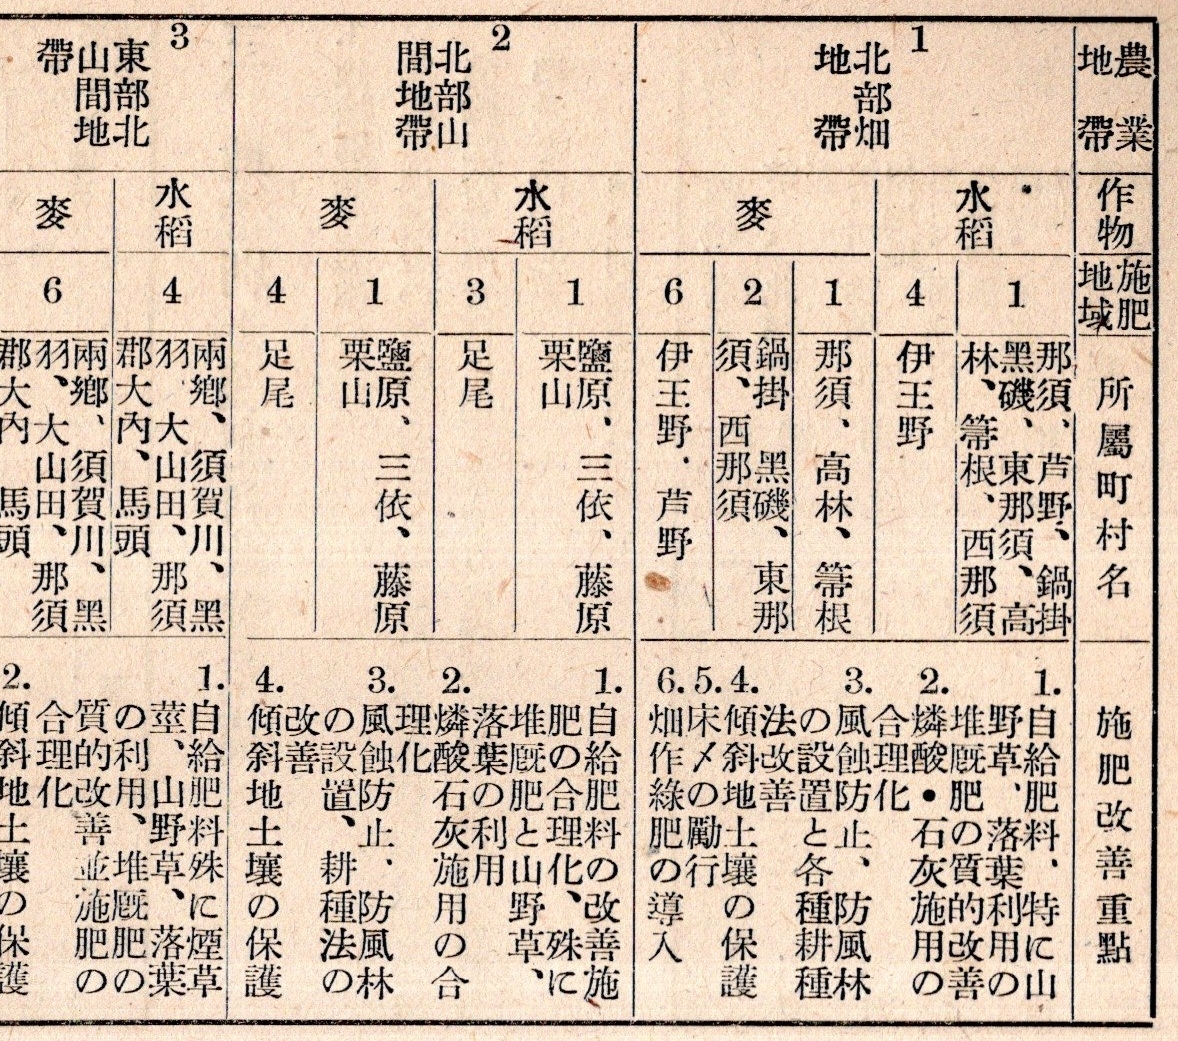 農業
地帶
作物
施肥
地域
所屬町村名
施肥改善重點
1
北部畑
地帶
水稻
1
那須、芦野、鍋掛
黑磯、東那須、高
林、箒根、西那須
4
伊王野
麥
1
那須、高林、箒根
2
鍋掛 黑磯、東那
須、西那須
6
伊王野、芦野
1.自給肥料、特に山
野草、落葉利用の
堆厩肥の質的改善
2.燐酸・石灰施用の
合理化
3.風蝕防止、防風林
の設置と各種耕種
法改善
4.傾斜地土壤の保護
5.床〆の勵行
6.畑作綠肥の導入
2
北部山
間地帶
水稻
1
鹽原、三依、藤原
栗山
3
足尾
麥
1
鹽原、三依、藤原
栗山
4
足尾
1.自給肥料の改善施
肥の合理化、殊に
堆厩肥と山野草、
落葉の利用
2.燐酸石灰施用の合
理化
3.風蝕防止、防風林
の設置、耕種法の
改善
4.傾斜地土壤の保護
3
東部北
山間地
帶
水稻
4
兩鄉、須賀川、黑
羽 大山田、那須
郡大內、馬頭
麥
6
兩鄉、須賀川、黑
羽、大山田、那須
郡大內 馬頭
1.自給肥料殊に煙草
莖、山野草、落葉
の利用、堆厩肥の
質的改善並施肥の
合理化
2.傾斜地土壤の保護